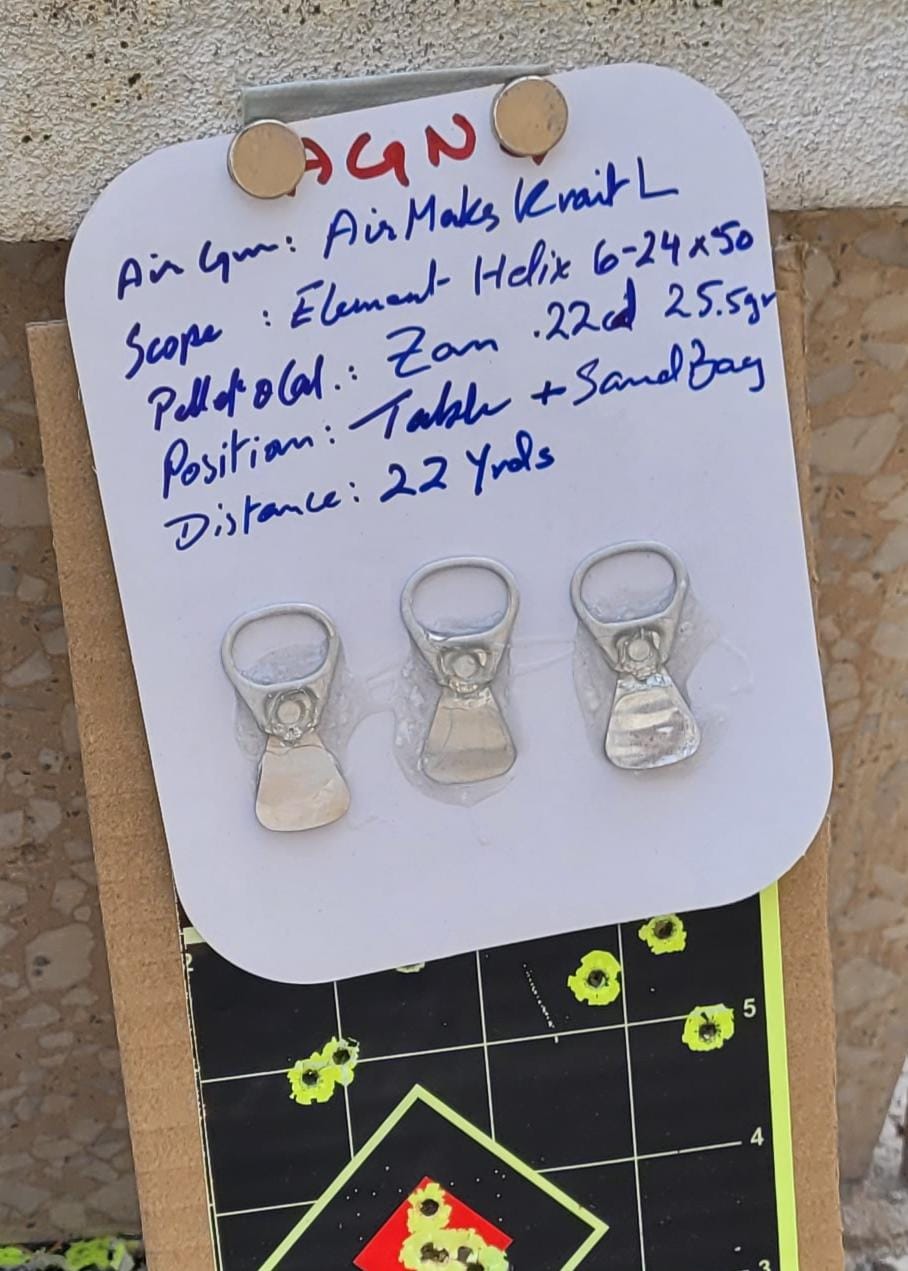 AGN
Air Gun: AirMaks Krait L
Scope : Element Helix 6-24x50
Pellet & Cal.: Zan .22cal 25.5gr
Position: Table + Sand Bag
Distance: 22 Yrds
2
5
4
3